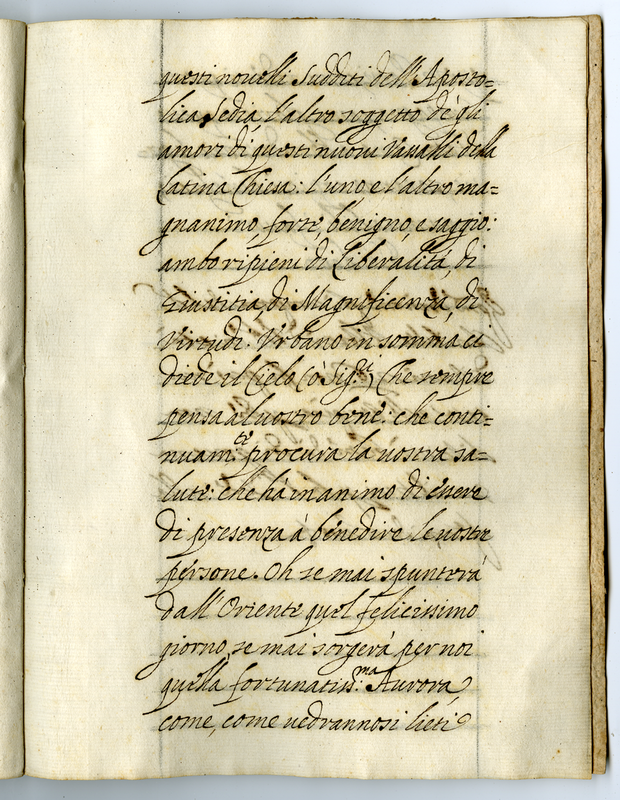 questi nouelli sudditi dell'Aposto=
lica sedia, l'altro soggetto de gli
amori di questi nuoui Vassalli della
Latina Chiesa: l'uno e l'altro ma=
gnanimo, forte, benigno, e saggio:
ambo ripieni di Liberalità, di
Giustitia, di Magnificenza, di
Virtudi. Vrbano in somma ci
diede il Cielo (ò Sig.ri) Che sempre
pensa al uostro bene: che conti=
nuam.te procura la uostra sa=
lute: che hà in animo di essere
di presenza à benedire le uostre
persone. Oh se mai spunterà
dall'Oriente quel felicissimo
giorno, se mai sorgerà per noi
quella fortunatiss.ma Aurora,
come, come uedrannosi lieti